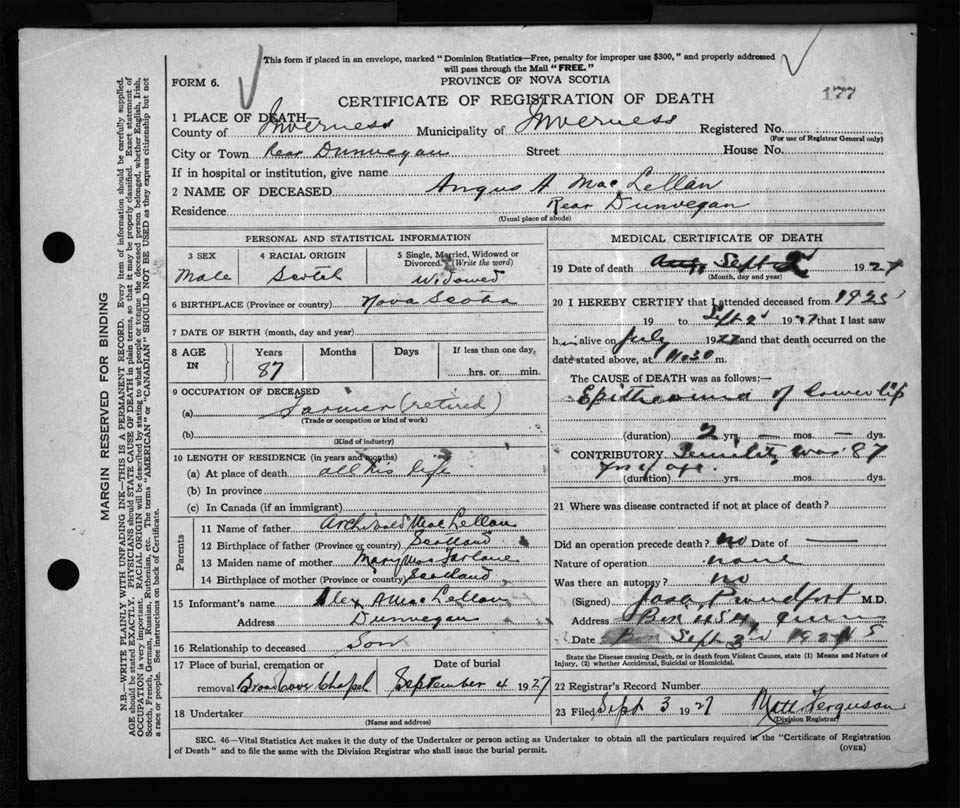 This form if placed in an envelope, marked "Dominion Statistics—Free, penalty for improper use $300," and properly addressed
will pass through the Mail "FREE."
FORM 6.
PROVINCE OF NOVA SCOTIA
177
CERTIFICATE OF REGISTRATION OF DEATH
1 PLACE OF DEATH—
County of Inverness Municipality of Inverness Registered No.
(For use of Registrar General only)
City or Town Rear Dunvegan Street House No.
If in hospital or institution, give name
2 NAME OF DECEASED Angus A MacLellan
Residence Rear Dunvegan
(Usual place of abode)
PERSONAL AND STATISTICAL INFORMATION
3 SEX 4 RACIAL ORIGIN 5 Single, Married, Widowed or
Divorced. (Write the word)
Male Scotch Widowed
6 BIRTHPLACE (Province or country) Nova Scotia
7 DATE OF BIRTH (month, day and year)
8 AGE IN Years Months Days If less than one day,
87 hrs. or min.
9 OCCUPATION OF DECEASED
(a) Farmer (retired)
(Trade or occupation or kind of work)
(b)
(Kind of industry)
10 LENGTH OF RESIDENCE (in years and months)
(a) At place of death all his life
(b) In province
(c) In Canada (if an immigrant)
Parents
11 Name of father Archibald MacLellan
12 Birthplace of father (Province or country) Scotland
13 Maiden name of mother Mary MacFarlane
14 Birthplace of mother (Province or country) Scotland
15 Informant's name Alex A MacLellan
Address Dunvegan
16 Relationship to deceased Son
17 Place of burial, cremation or Date of burial
removal Broad Cove Chapel September 4 1927
18 Undertaker
(Name and address)
MEDICAL CERTIFICATE OF DEATH
19 Date of death Sept 2 1927
(Month, day and year)
20 I HEREBY CERTIFY that I attended deceased from 1925
19 to Sept 2d 1927 that I last saw
him alive on July 1927 and that death occurred on the
date stated above, at 11.30 m.
The CAUSE OF DEATH was as follows:—
Epithelioma of lower lip
(duration) 2 yrs. — mos. — dys.
CONTRIBUTORY Senility was 87
yrs of age.
(duration) yrs. mos. dys.
21 Where was disease contracted if not at place of death?
Did an operation precede death? no Date of —
Nature of operation none
Was there an autopsy? no
(Signed) M.D.
Address Box
Date Sept 3rd 1927
State the Disease causing Death, or in death from Violent Causes, state (1) Means and Nature of
Injury, (2) whether Accidental, Suicidal or Homicidal.
22 Registrar's Record Number
23 Filed Sept 3 1927 Ferguson
(Division Registrar)
SEC. 46—Vital Statistics Act makes it the duty of the Undertaker or person acting as Undertaker to obtain all the particulars required in the "Certificate of Registration
of Death" and to file the same with the Division Registrar who shall issue the burial permit.
(OVER)
MARGIN RESERVED FOR BINDING
N.B.—WRITE PLAINLY WITH UNFADING INK—THIS IS A PERMANENT RECORD. Every item of information should be carefully supplied.
AGE should be stated EXACTLY. PHYSICIANS should STATE CAUSE OF DEATH in plain terms, so that it may be properly classified. Exact statement of
OCCUPATION is very important. RACIAL ORIGIN will be described by stating to what people or tongue the deceased person belonged, whether English, Irish,
Scotch, French, German, Russian, Ruthenian, etc. The terms "AMERICAN" or "CANADIAN" SHOULD NOT BE USED as they express citizenship but not
a race or people. See instructions on back of Certificate.